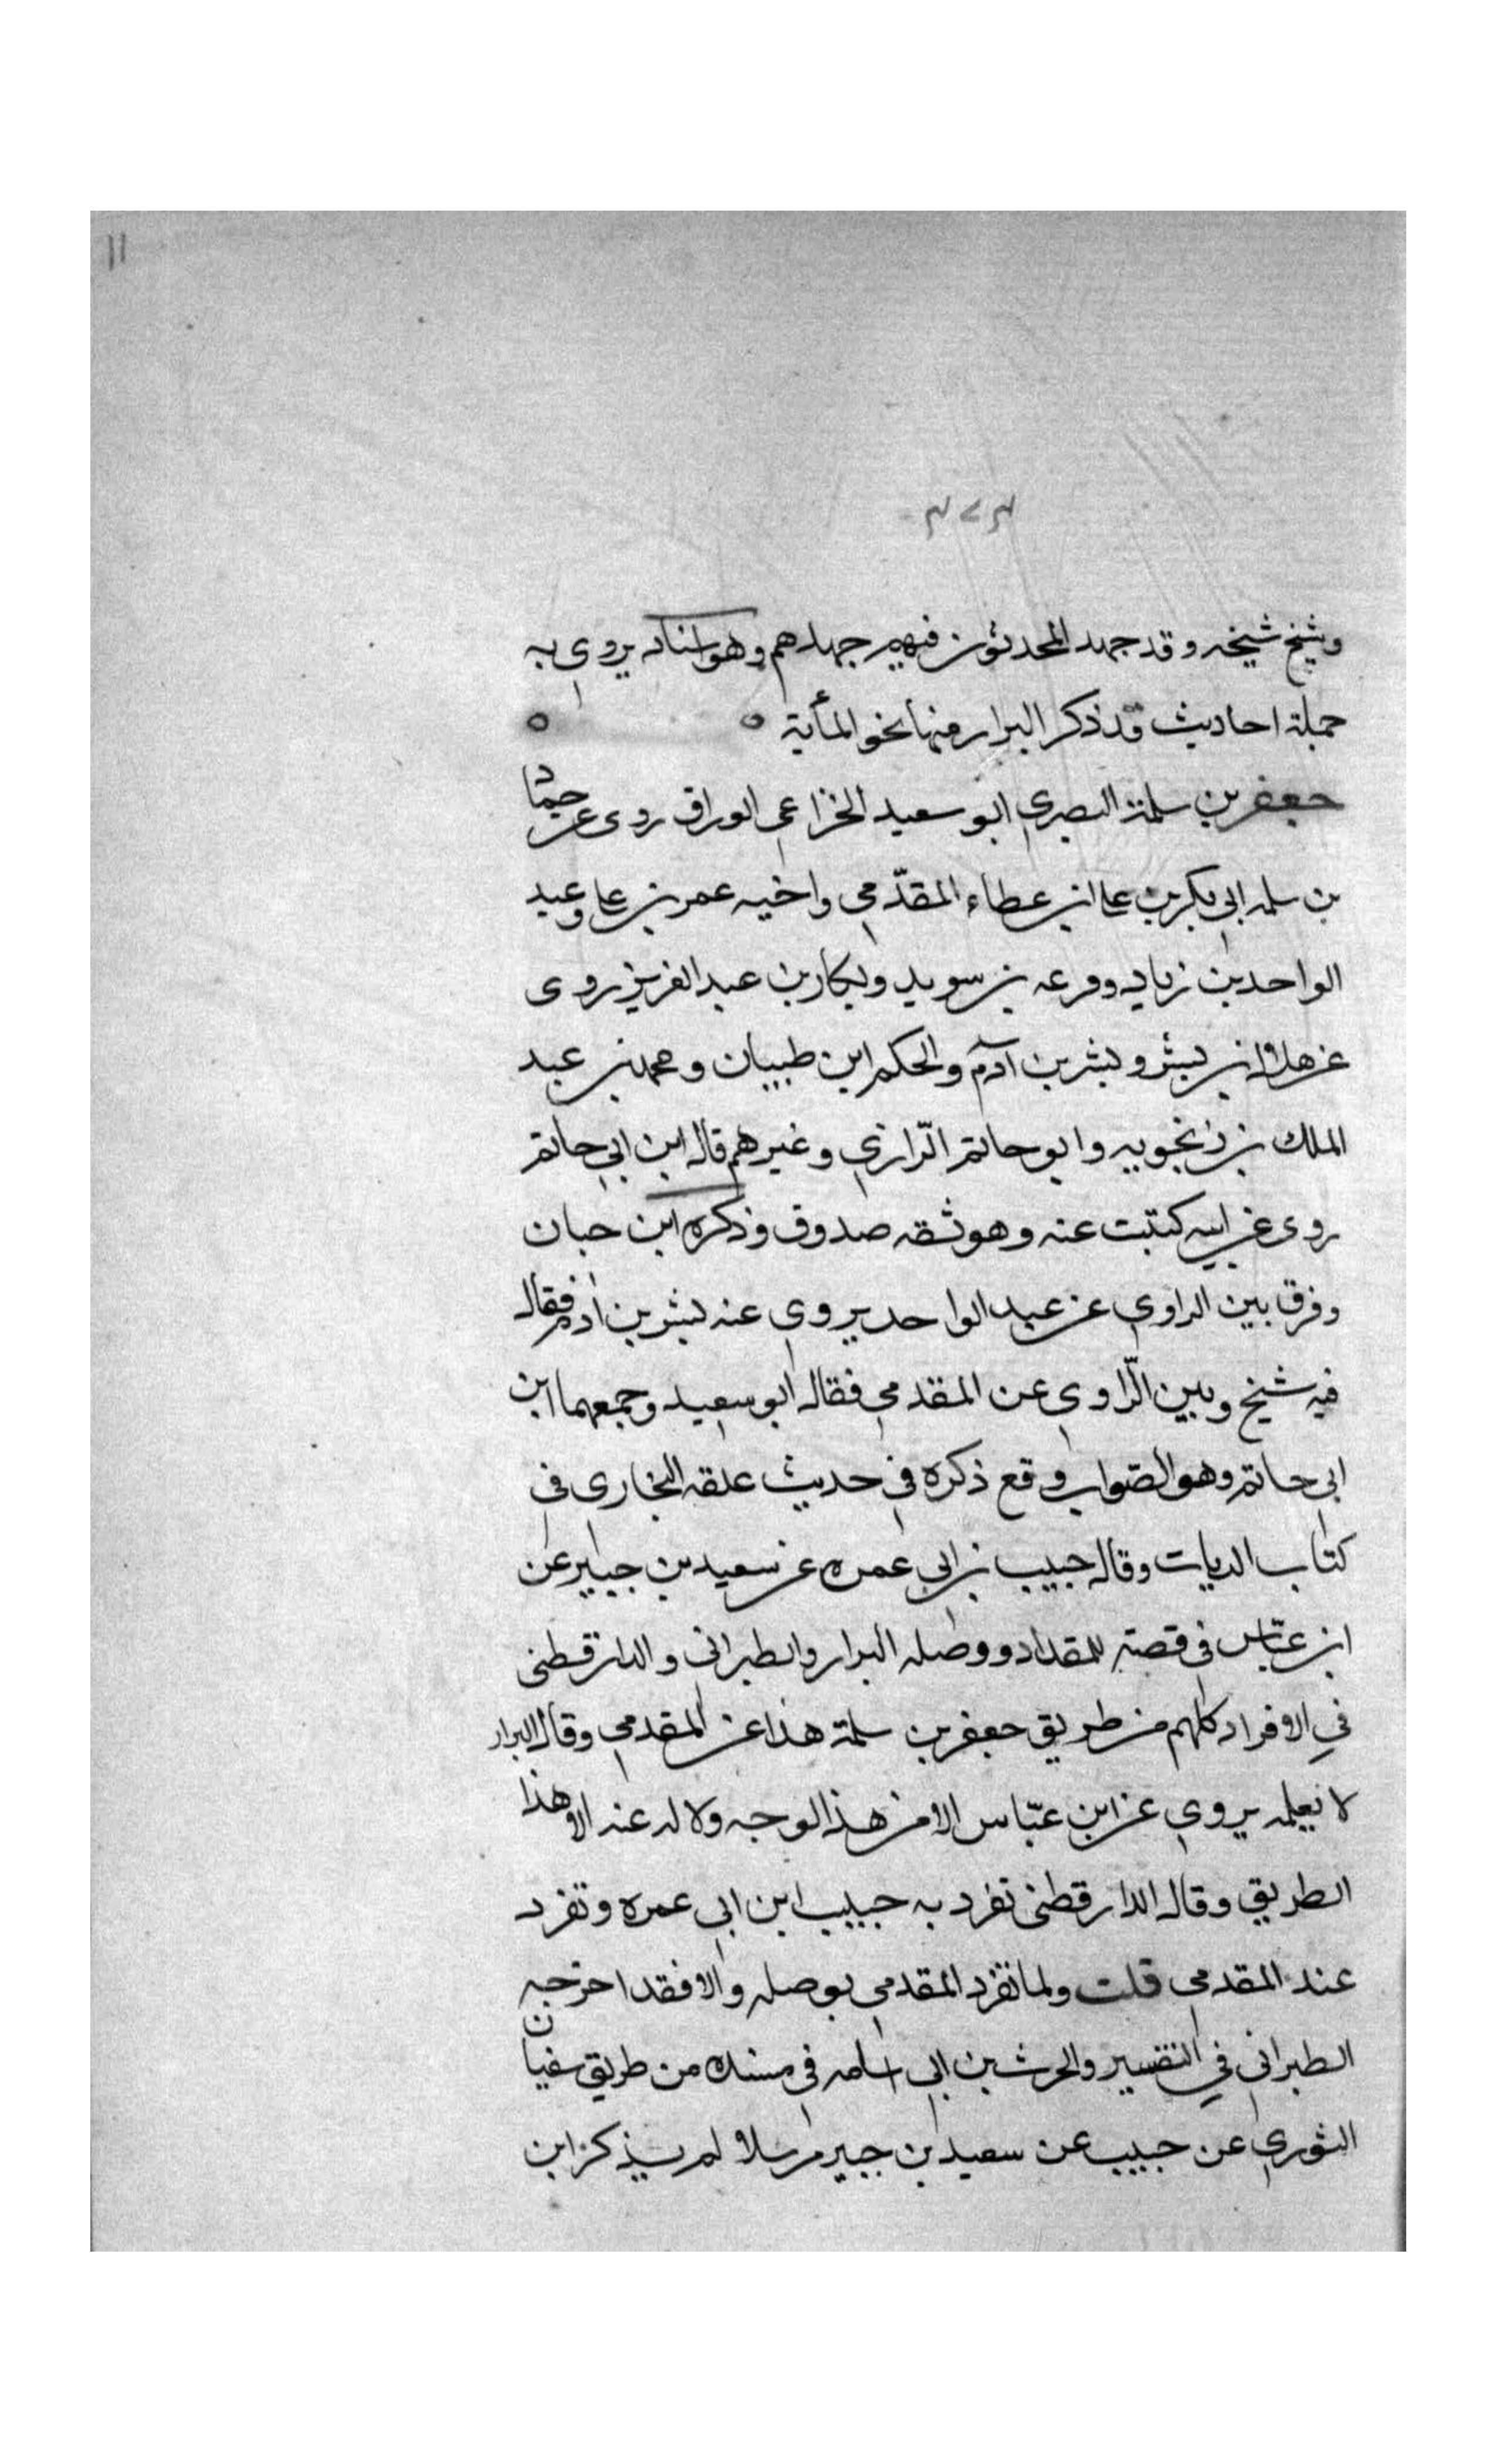 ١١
٣٧٣
وشيخ شيخه وقد جهد المحدثون فيهم جهدهم وهو اسناد يروى به
جملة احاديث قد ذكر البزار منها نحو المأية ٥ ٥
جعفر بن سلمة البصري ابو سعيد الخزاعى الوراق روى عن حماد
بن سلمه ابى بكر بن على ابن عطاء المقدّمي واخيه عمر بن على وعبد
الواحد بن زياد وقرعه بن سويد وبكار بن عبد العزيز روى
عن هلال بن بشر وبشر بن آدم والحكم ابن طبيان ومحمد بن عبد
الملك بن زنجويه وابو حاتم الرّازي وغيرهم قال ابن ابى حاتم
روى عن ابيه كتبت عنه وهو ثقه صدوق وذكره ابن حبان
وفرق بين الراوي عن عبد الواحد يروي عنه بشر بن ادم فقال
فيه شيخ وبين الرّاوي عن المقدمي فقال ابو سعيد وجمعهما ابن
ابى حاتم وهو الصّواب وقع ذكره في حديث علقه البخارى فى
كتاب الديات وقال حبيب بن ابى عمره عن سعيد بن جبير عن
ابن عبّاس فى قصة المقداد ووصله البزار والطبرانى والدارقطنى
في الافراد كلهم من طريق جعفر بن سلمة هذا عن المقدمي وقال البزار
لا نعلمه يروي عن ابن عبّاس الا من هذا الوجه ولا له عنه الا هذا
الطريق وقال الدارقطنى تفرد به حبيب ابن ابى عمره وتفرد
عند المقدمي قلت ولما تفرد المقدمي بوصله والا فقد اخرجه
الطبرانى في التفسير والحرث بن ابى اسامه فى مسنده من طريق سفيان
الثوري عن حبيب عن سعيد بن جبير مرسلا لم يذكر ابن